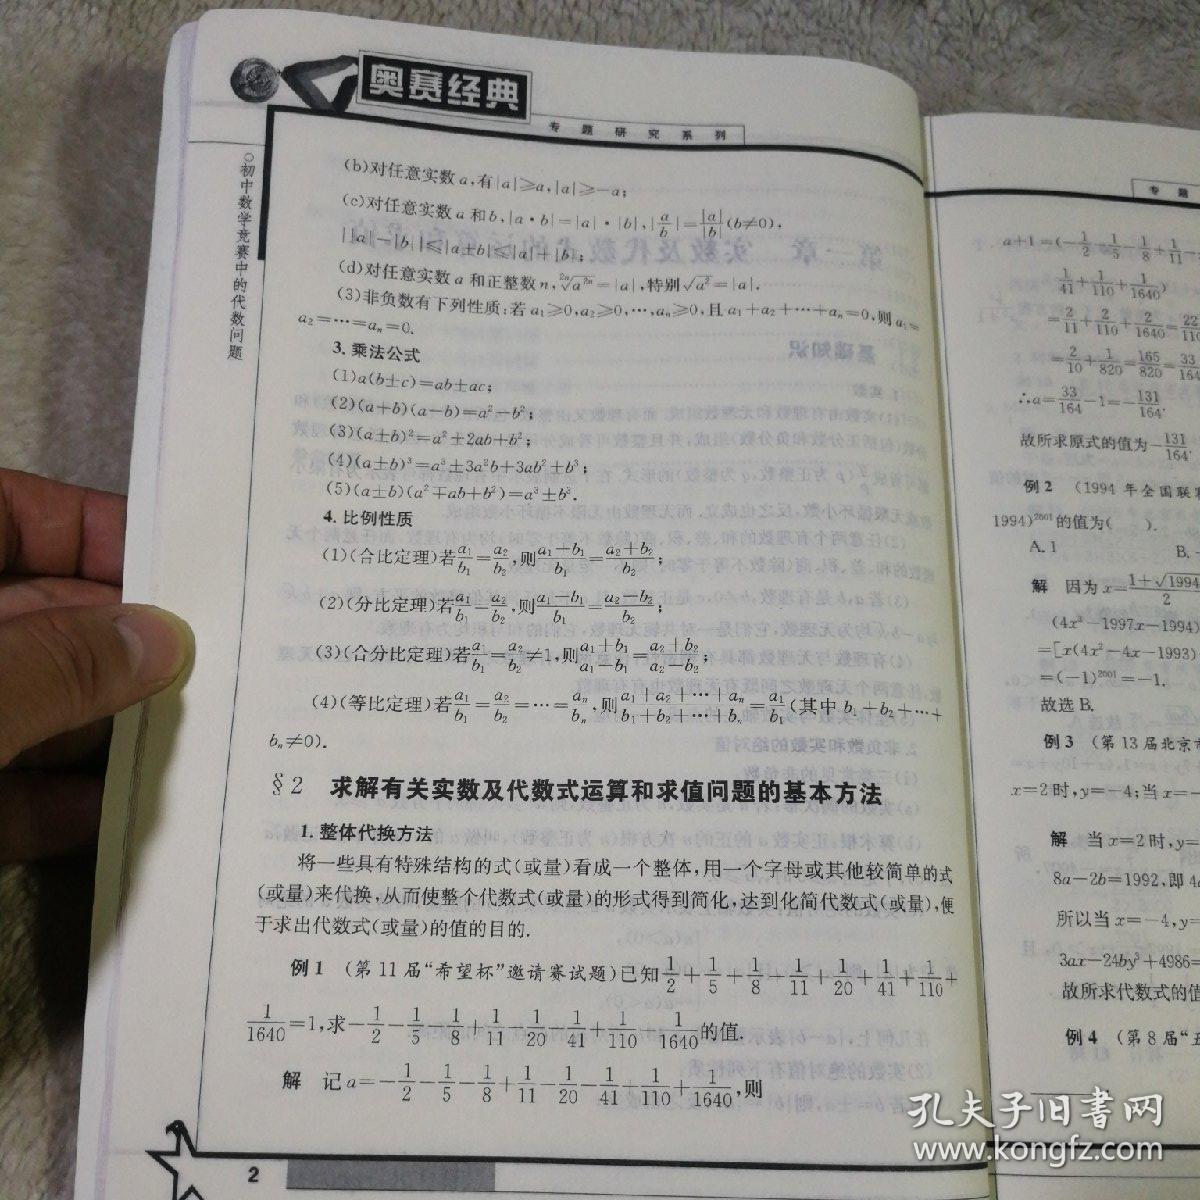 奥赛经典
专题研究系列
○初中数学竞赛中的代数问题
(b)对任意实数a,有|a|≥a,|a|≥-a;
(c)对任意实数a和b,|a·b|=|a|·|b|,|a/b|=|a|/|b|(b≠0).
||a|-|b||≤|a±b|≤|a|+|b|;
(d)对任意实数a和正整数n,²ⁿ√a²ⁿ=|a|,特别√a²=|a|.
(3)非负数有下列性质:若a₁≥0,a₂≥0,…,aₙ≥0,且a₁+a₂+…+aₙ=0,则a₁=
a₂=…=aₙ=0.
3.乘法公式
(1)a(b±c)=ab±ac;
(2)(a+b)(a-b)=a²-b²;
(3)(a±b)²=a²±2ab+b²;
(4)(a±b)³=a³±3a²b+3ab²±b³;
(5)(a±b)(a²∓ab+b²)=a³±b³.
4.比例性质
(1)(合比定理)若a₁/b₁=a₂/b₂,则(a₁+b₁)/b₁=(a₂+b₂)/b₂;
(2)(分比定理)若a₁/b₁=a₂/b₂,则(a₁-b₁)/b₁=(a₂-b₂)/b₂;
(3)(合分比定理)若a₁/b₁=a₂/b₂≠1,则(a₁+b₁)/(a₁-b₁)=(a₂+b₂)/(a₂-b₂);
(4)(等比定理)若a₁/b₁=a₂/b₂=…=aₙ/bₙ,则(a₁+a₂+…+aₙ)/(b₁+b₂+…+bₙ)=a₁/b₁(其中b₁+b₂+…+
bₙ≠0).
§2 求解有关实数及代数式运算和求值问题的基本方法
1.整体代换方法
将一些具有特殊结构的式(或量)看成一个整体,用一个字母或其他较简单的式
(或量)来代换,从而使整个代数式(或量)的形式得到简化,达到化简代数式(或量),便
于求出代数式(或量)的值的目的.
例1 (第11届“希望杯”邀请赛试题)已知1/2+1/5+1/8+1/11+1/20+1/41+1/110+
1/1640=1,求-1/2-1/5-1/8+1/11-1/20-1/41+1/110+1/1640的值.
解 记a=-1/2-1/5-1/8+1/11-1/20-1/41+1/110+1/1640,则
2
专题
a+1=(-1/2-1/5-1/8+1/11-
1/41+1/110+1/1640)
=2/11+2/110+2/1640=22
=2/10+1/820=165/820=33/164
∴a=33/164-1=-131/164.
故所求原式的值为-131/164.
例2 (1994年全国联
1994)²⁰⁰¹的值为( ).
A.1 B.
解 因为x=(1+√1994)/2
(4x³-1997x-1994)
=[x(4x²-4x-1993)
=(-1)²⁰⁰¹=-1.
故选B.
例3 (第13届北京市
x=2时,y=-4;当x=-
解 当x=2时,y=
8a-2b=1992,即4
所以当x=-4,y=
3ax-24by³+4986=
故所求代数式的值
例4 (第8届“五
孔夫子旧书网
www.kongfz.com